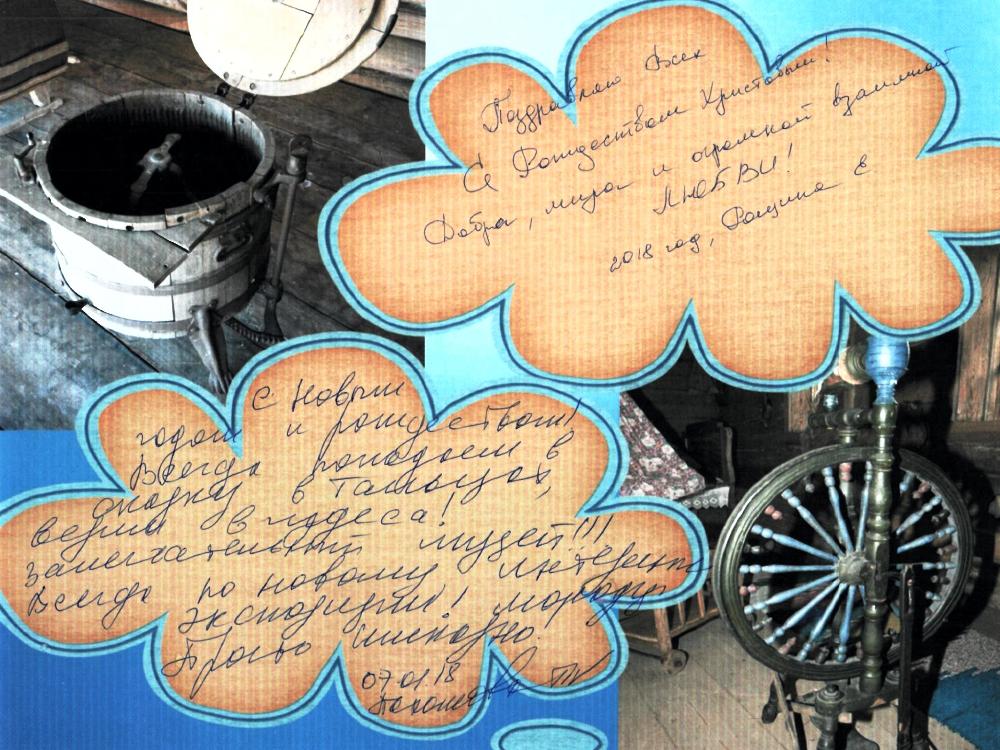 Поздравляю Всех
С Рождеством Христовым!
Добра, мира и огромной взаимной
ЛЮБВИ!
2018 год, Рощина Е
С Новым
годом и рождеством!
Всегда попадаем в
сказку в Тальцах,
верим в чудеса!
замечательный музей!!!
Всегда по новому, интересные
экспозиции! молодцы
Просто сказочно.
07.01.18